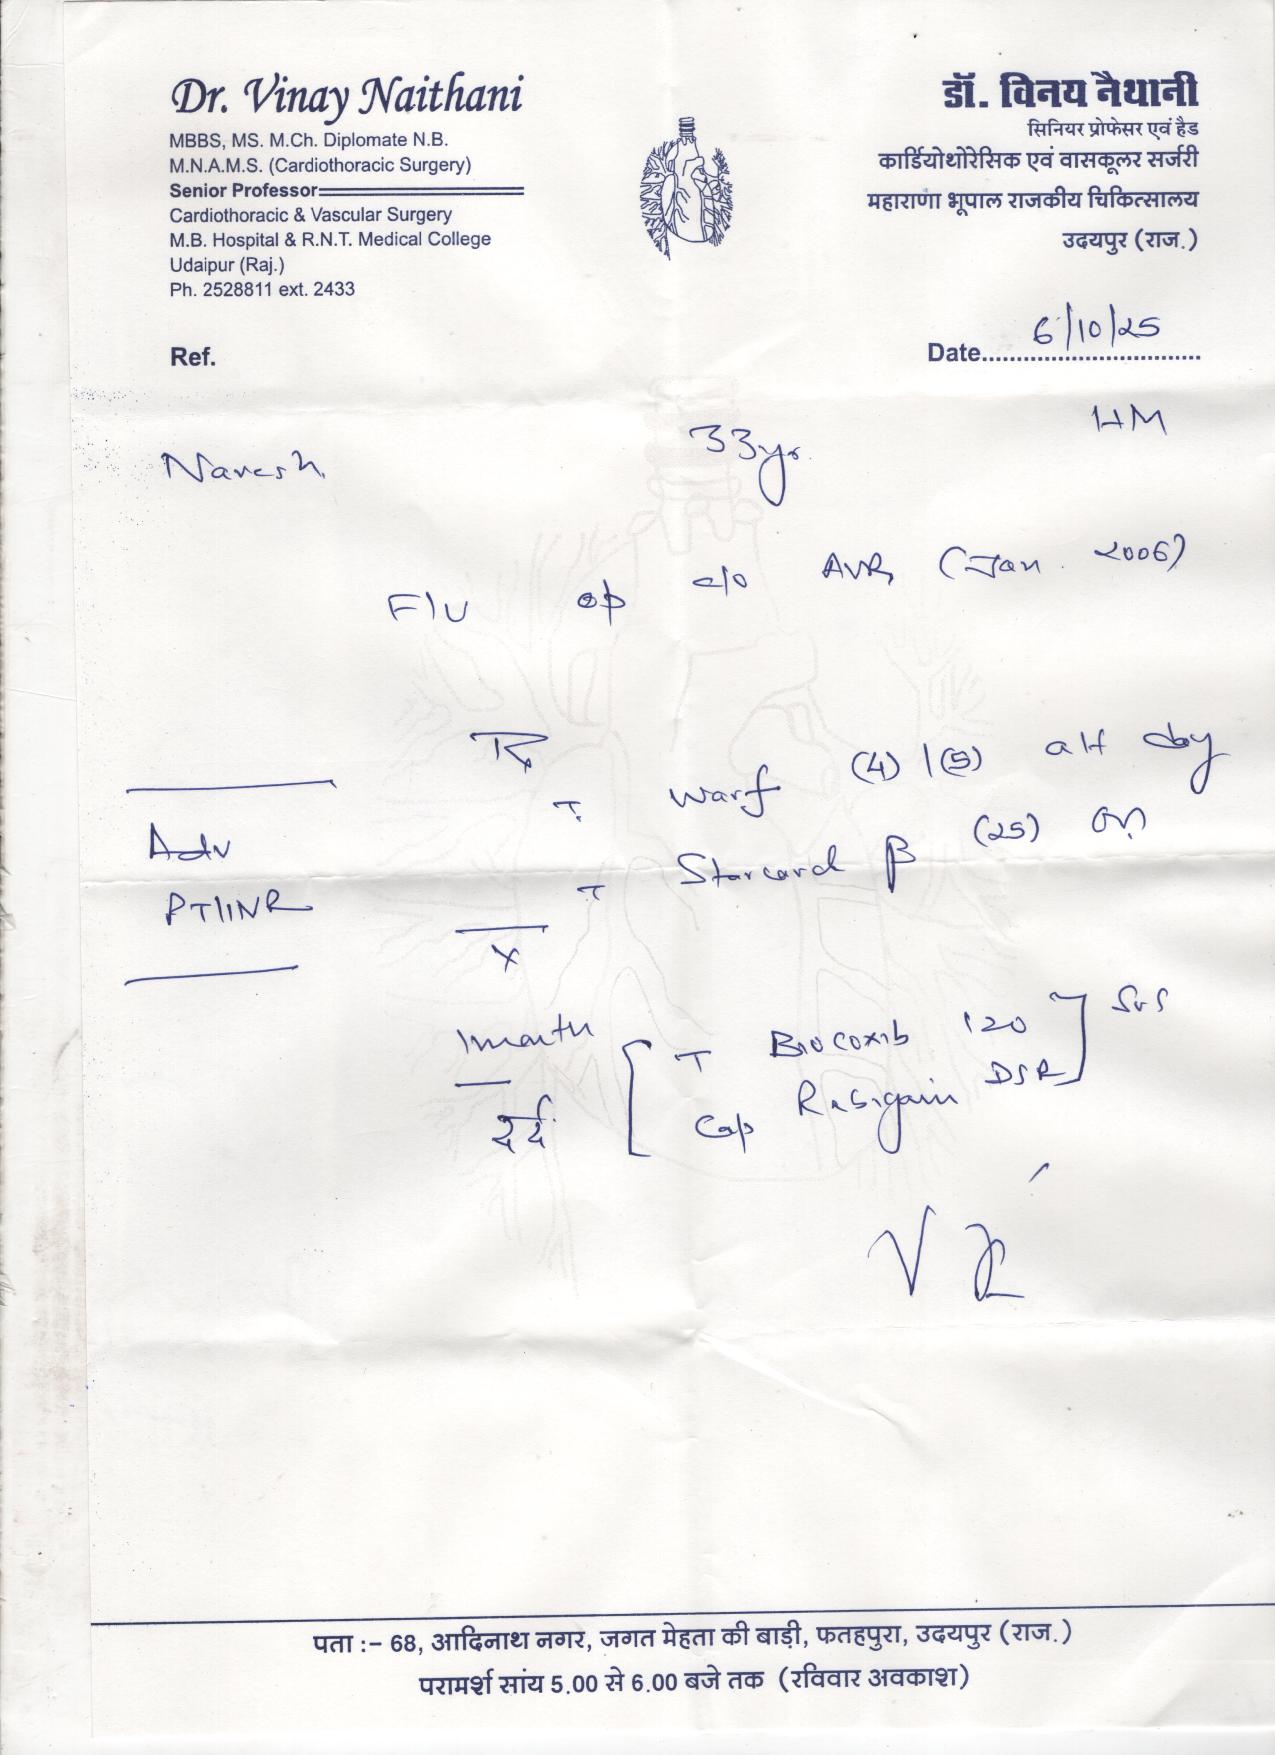 Dr. Vinay Naithani
MBBS, MS. M.Ch. Diplomate N.B.
M.N.A.M.S. (Cardiothoracic Surgery)
Senior Professor
Cardiothoracic & Vascular Surgery
M.B. Hospital & R.N.T. Medical College
Udaipur (Raj.)
Ph. 2528811 ext. 2433
डॉ. विनय नैथानी
सिनियर प्रोफेसर एवं हैड
कार्डियोथोरेसिक एवं वासकूलर सर्जरी
महाराणा भूपाल राजकीय चिकित्सालय
उदयपुर (राज.)
Ref.
Date 6/10/25
Naresh 33yr. HM
F/U op c/o AVR (Jan. 2006)
T. Warf (4) / (5) alt day
Adv
T Starcard β (25)
PT/INR
x
1 month
T Biocoxib 120 SOS
दर्द
Cap Rabigain DSR
पता :- 68, आदिनाथ नगर, जगत मेहता की बाड़ी, फतहपुरा, उदयपुर (राज.)
परामर्श सांय 5.00 से 6.00 बजे तक (रविवार अवकाश)